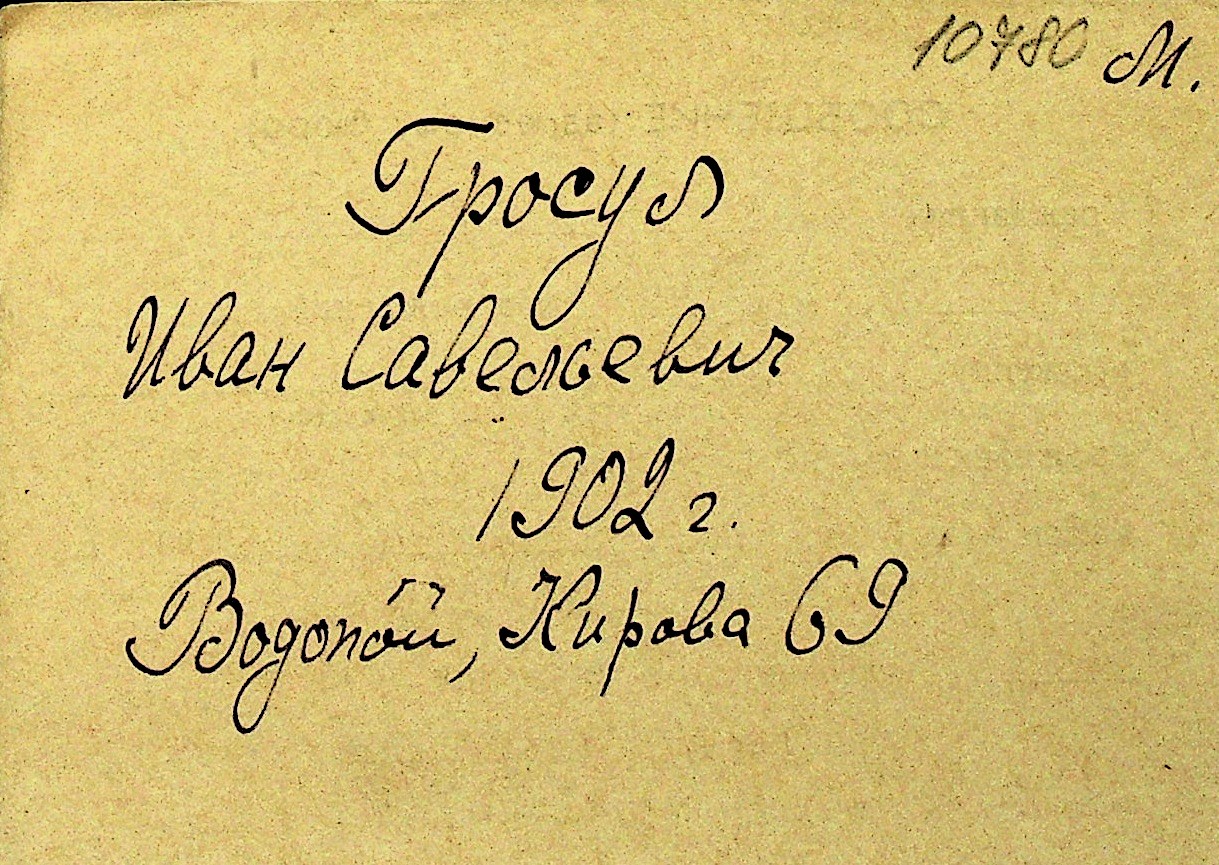 10780 М.
Гросул
Иван Савельевич
1902 г.
Водопой, Кирова 69